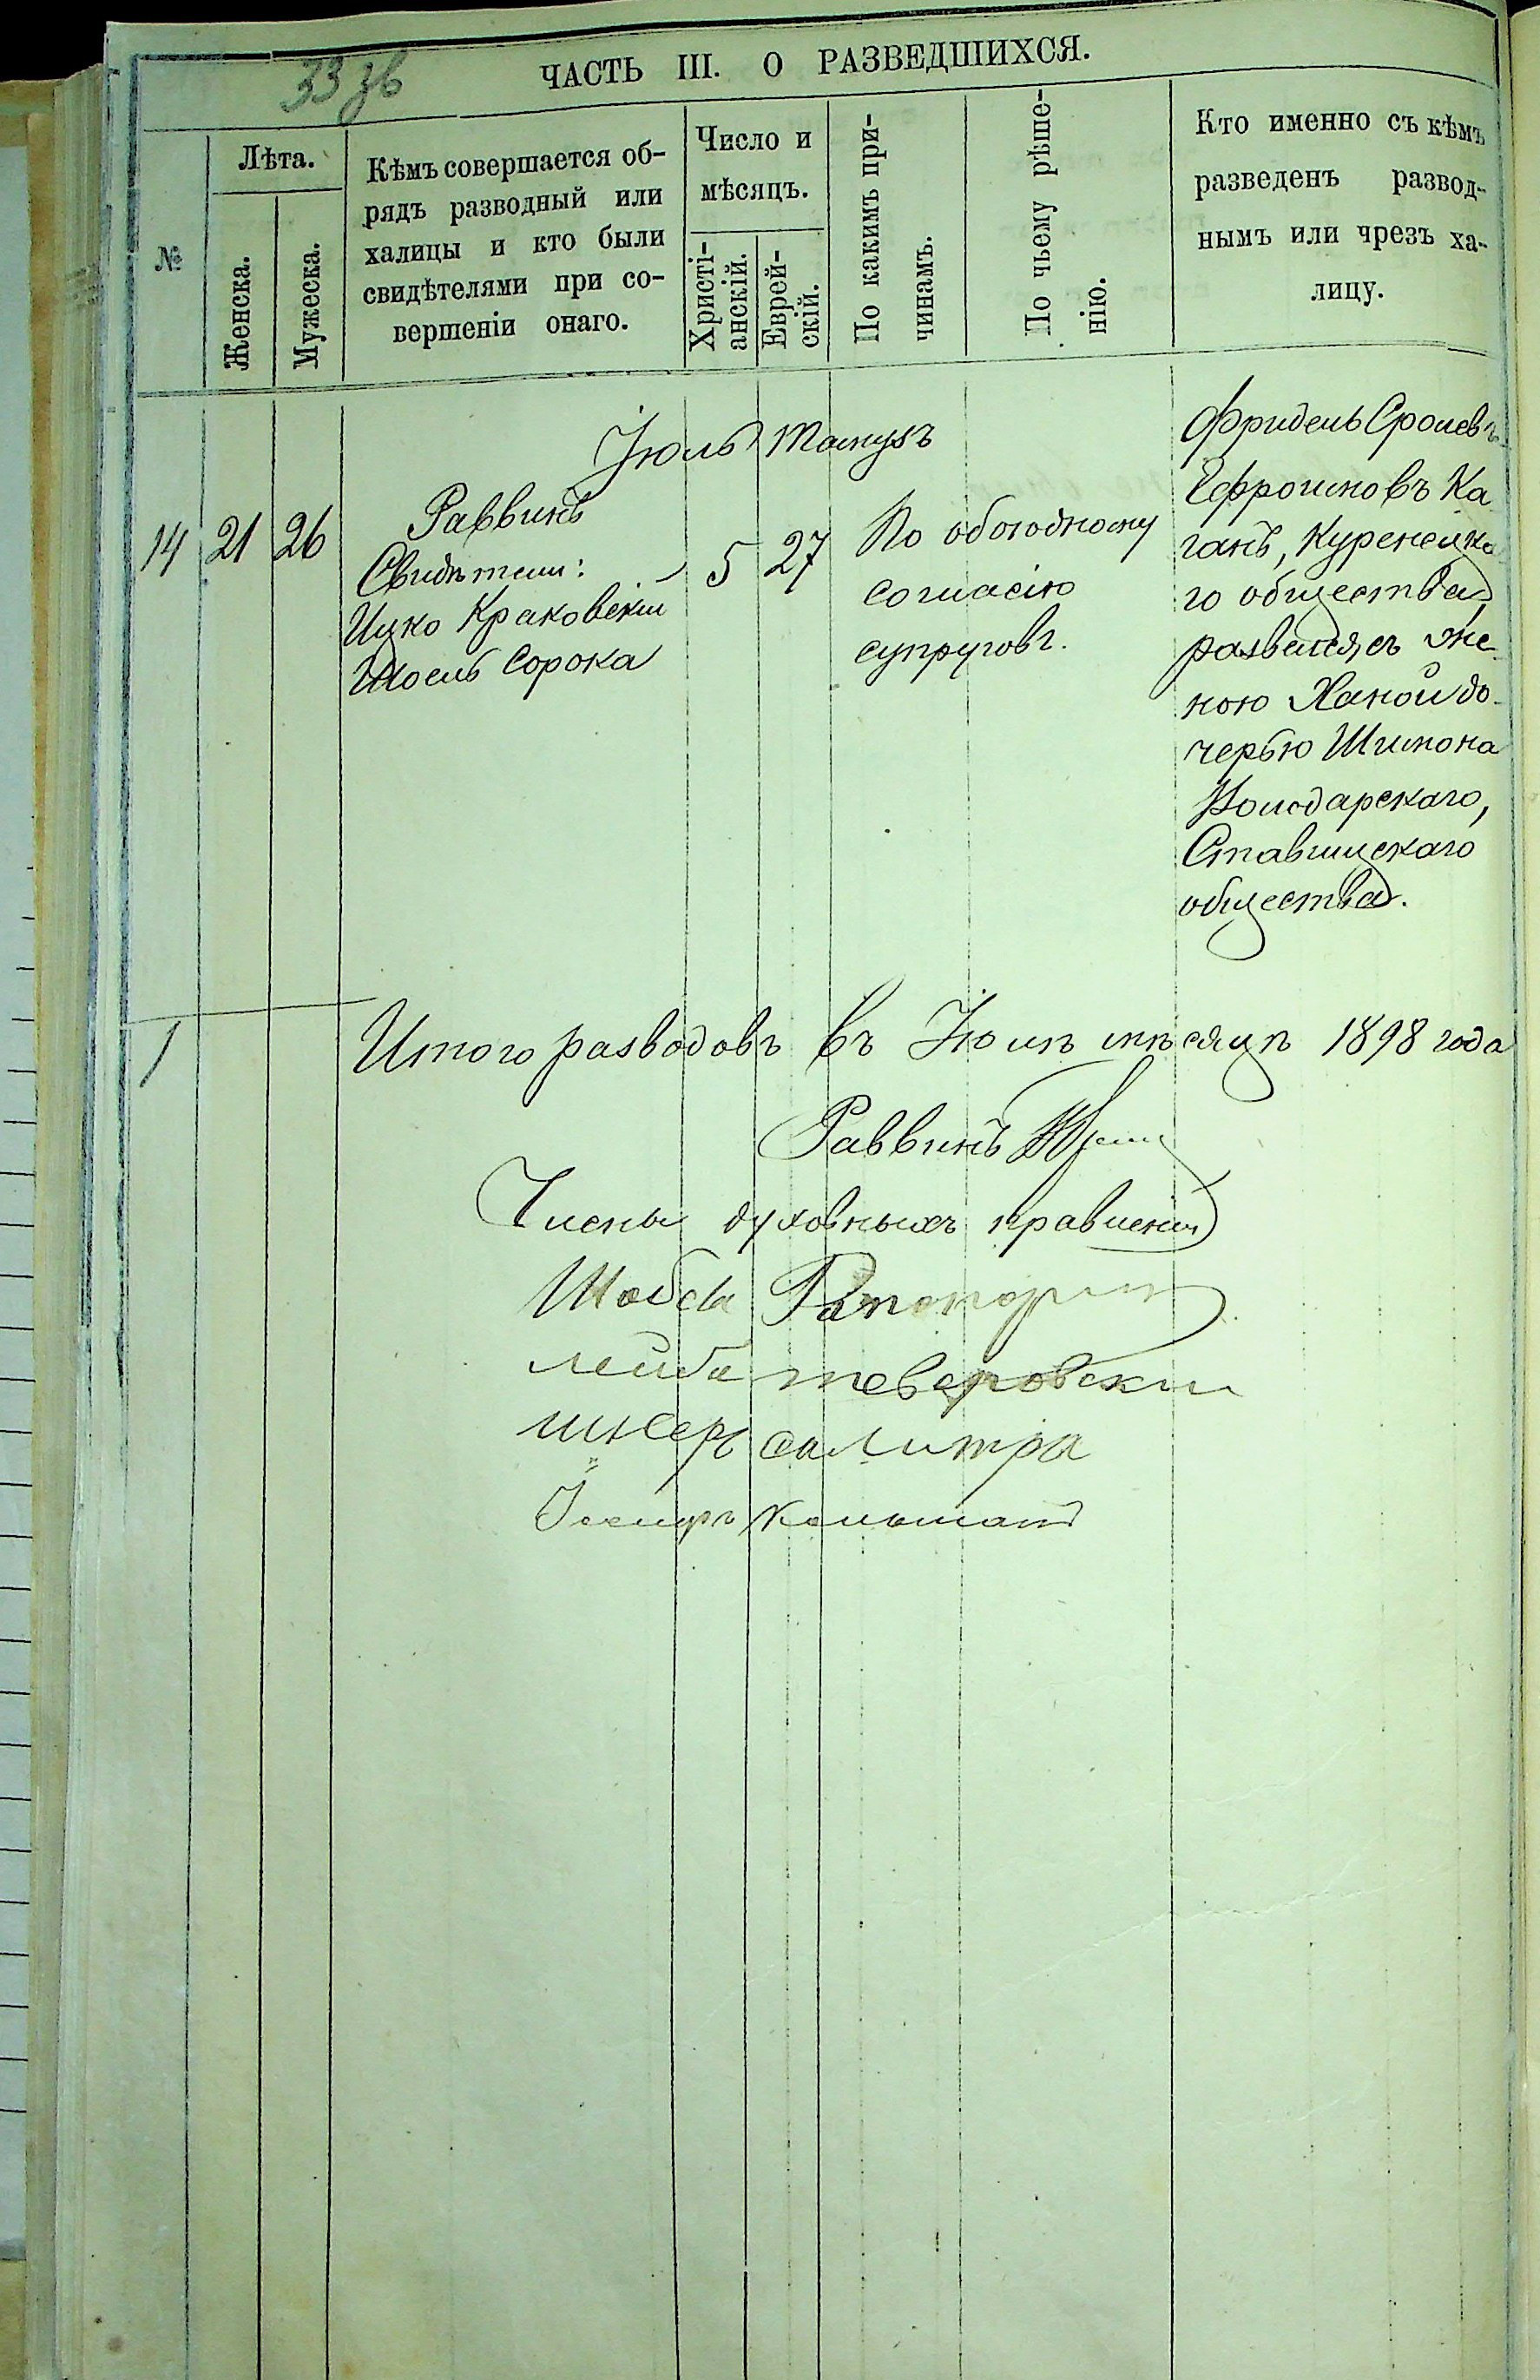 33 зв
ЧАСТЬ III. О РАЗВЕДШИХСЯ.
№
Лѣта.
Женска.
Мужеска.
Кѣмъ совершается об-
рядъ разводный или
халицы и кто были
свидѣтелями при со-
вершеніи онаго.
Число и
мѣсяцъ.
Христі-
анскій.
Еврей-
скій.
По какимъ при-
чинамъ.
По чьему рѣше-
нію.
Кто именно съ кѣмъ
разведенъ развод-
нымъ или чрезъ ха-
лицу.
Іюль Тамузъ
14 21 26
Раввинъ
Свидѣтели:
Ицко Краковскій
Шоель Сорока
5 27
По обоюдному
согласію
супруговъ.
Фридель Сролевъ
Ефроимовъ Ка
ганъ, Куренецка
го общества,
развелся съ же
ною Ханой до-
черью Шимона
Володарскаго,
Ставищскаго
общества.
1 Итого разводовъ въ Іюлѣ мѣсяцѣ 1898 года
Раввинъ
Члены духовныхъ правленій
Шобса Рапопорт
лейба тверовскій
салитра
Кельман